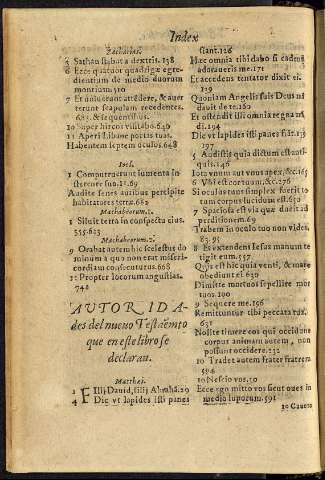 Index
Zachariae.
3 Sathan stabat a dextris. 138
6 Ecce quatuor quadrigæ egre
dientium de medio duorum
montium. 510
7 Et noluerunt attédere, & auer
terunt scapulam recedentes.
683. & sequentibus.
10 Super hircos visitabo. 640
11 Aperi Libane portas tuas.
Habentem septem oculos. 648
Ioel.
1 Computruerunt iumenta in
stercore suo. 69
Audite senes auribus percipite
habitatores terræ. 682
Machabeorum. 1.
1 Siluit terra in conspectu eius.
555. 623
Machabeorum. 2.
9 Orabat autem hic scelestus do
minum a quo non erat miseri-
cordiam consecuturus. 668
12 Propter locorum angustias.
742
AUTORIDA-
des del nueuo Testaméto
que en este libro se
declaran.
Matthæi.
1 FIlij Dauid, filij Abrahã. 29
4 Dic vt lapides isti panes
fiant. 126
Hæc omnia tibi dabo si cadens
adoraueris me. 171
Et accedens tentator dixit ei.
129
Quoniam Angelis suis Deus mã
dauit de te. 160
Et ostendit illi omnia regna mũ
di. 194
Dic vt lapides isti panes fiãt. 139
197
5 Audistis quia dictum est anti-
quis. 146
Iota vnum aut vnus apex, &c. 165
6 Vbi est cor tuum, &c. 376
Si oculus tuus simplex fuerit to
tum corpus lucidum est. 630
7 Spatiosa est via quæ ducit ad
perditionem. 69
Trabem in oculo tuo non vides,
83. 95
8 Et extendens Iesus manum te
tigit eum. 557
Quis est hic quia venti, & mare
obediunt ei. 630
Dimitte mortuos sepellire mor
tuos. 190
9 Sequere me. 156
Remittuntur tibi peccata tua.
631
Nolite timere eos qui occidunt
corpus animam autem, non
possunt occidere. 232
10 Tradet autem frater fratrem
594
10 Nescio vos. 50
Ecce ego mitto vos sicut oues in
medio luporum. 591
10 Cauete